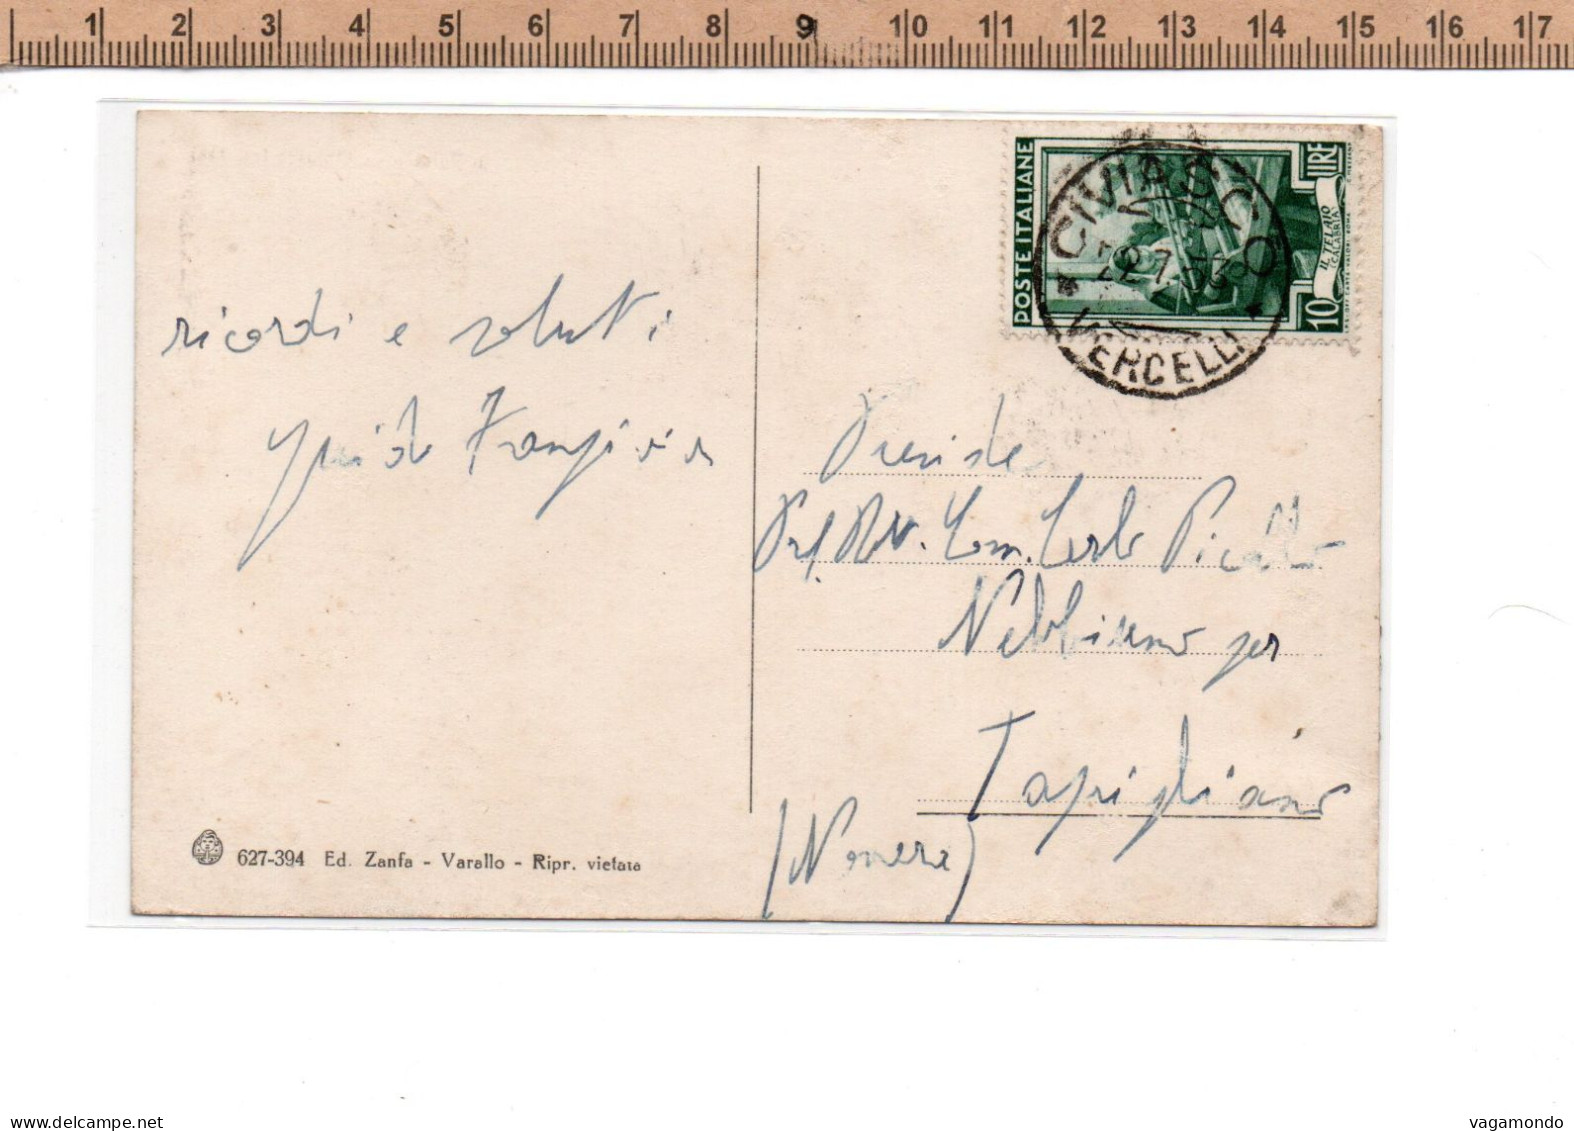 1 2 3 4 5 6 7 8 9 10 11 12 13 14 15 16 17
POSTE ITALIANE
LIRE
10
IL TELAIO
(CALABRIA)
CIVIASCO
22.7.53
VERCELLI
ricordi e saluti
Guido
Preside
Prof. Avv. Com. Carlo
Nebbiuno per
Tapigliano
(Novara)
627-394 Ed. Zanfa - Varallo - Ripr. vietata
delcampe.net
vagamondo